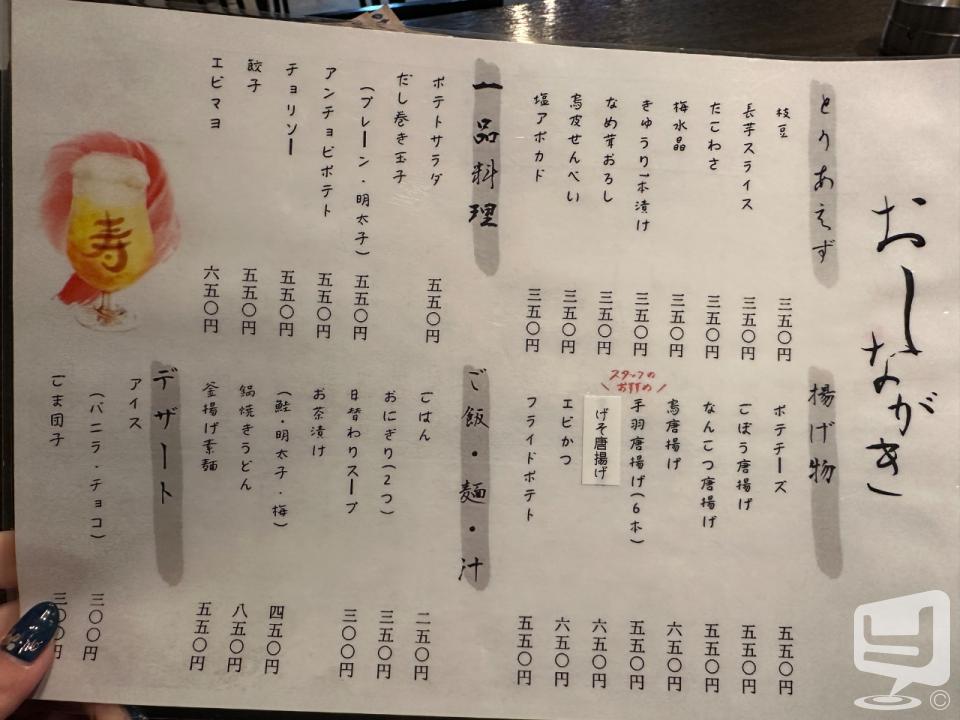 おしながき
とりあえず
枝豆 三五〇円
長芋スライス 三五〇円
たこわさ 三五〇円
梅水晶 三五〇円
きゅうり1本漬け 三五〇円
なめ茸おろし 三五〇円
鳥皮せんべい 三五〇円
塩アボカド 三五〇円
一品料理
ポテトサラダ 五五〇円
だし巻き玉子
(プレーン・明太子) 五五〇円
アンチョビポテト 五五〇円
チョリソー 五五〇円
餃子 五五〇円
エビマヨ 六五〇円
寿
揚げ物
ポテチーズ 五五〇円
ごぼう唐揚げ 五五〇円
なんこつ唐揚げ 五五〇円
鳥唐揚げ 六五〇円
スタッフの
おすすめ
手羽唐揚げ(6本) 五五〇円
げそ唐揚げ 六五〇円
エビかつ 六五〇円
フライドポテト 五五〇円
ご飯・麺・汁
ごはん 二五〇円
おにぎり(2つ) 三五〇円
日替わりスープ 三〇〇円
お茶漬け
(鮭・明太子・梅) 四五〇円
鍋焼きうどん 八五〇円
釜揚げ素麺 五五〇円
デザート
アイス
(バニラ・チョコ) 三〇〇円
ごま団子 三〇〇円
©